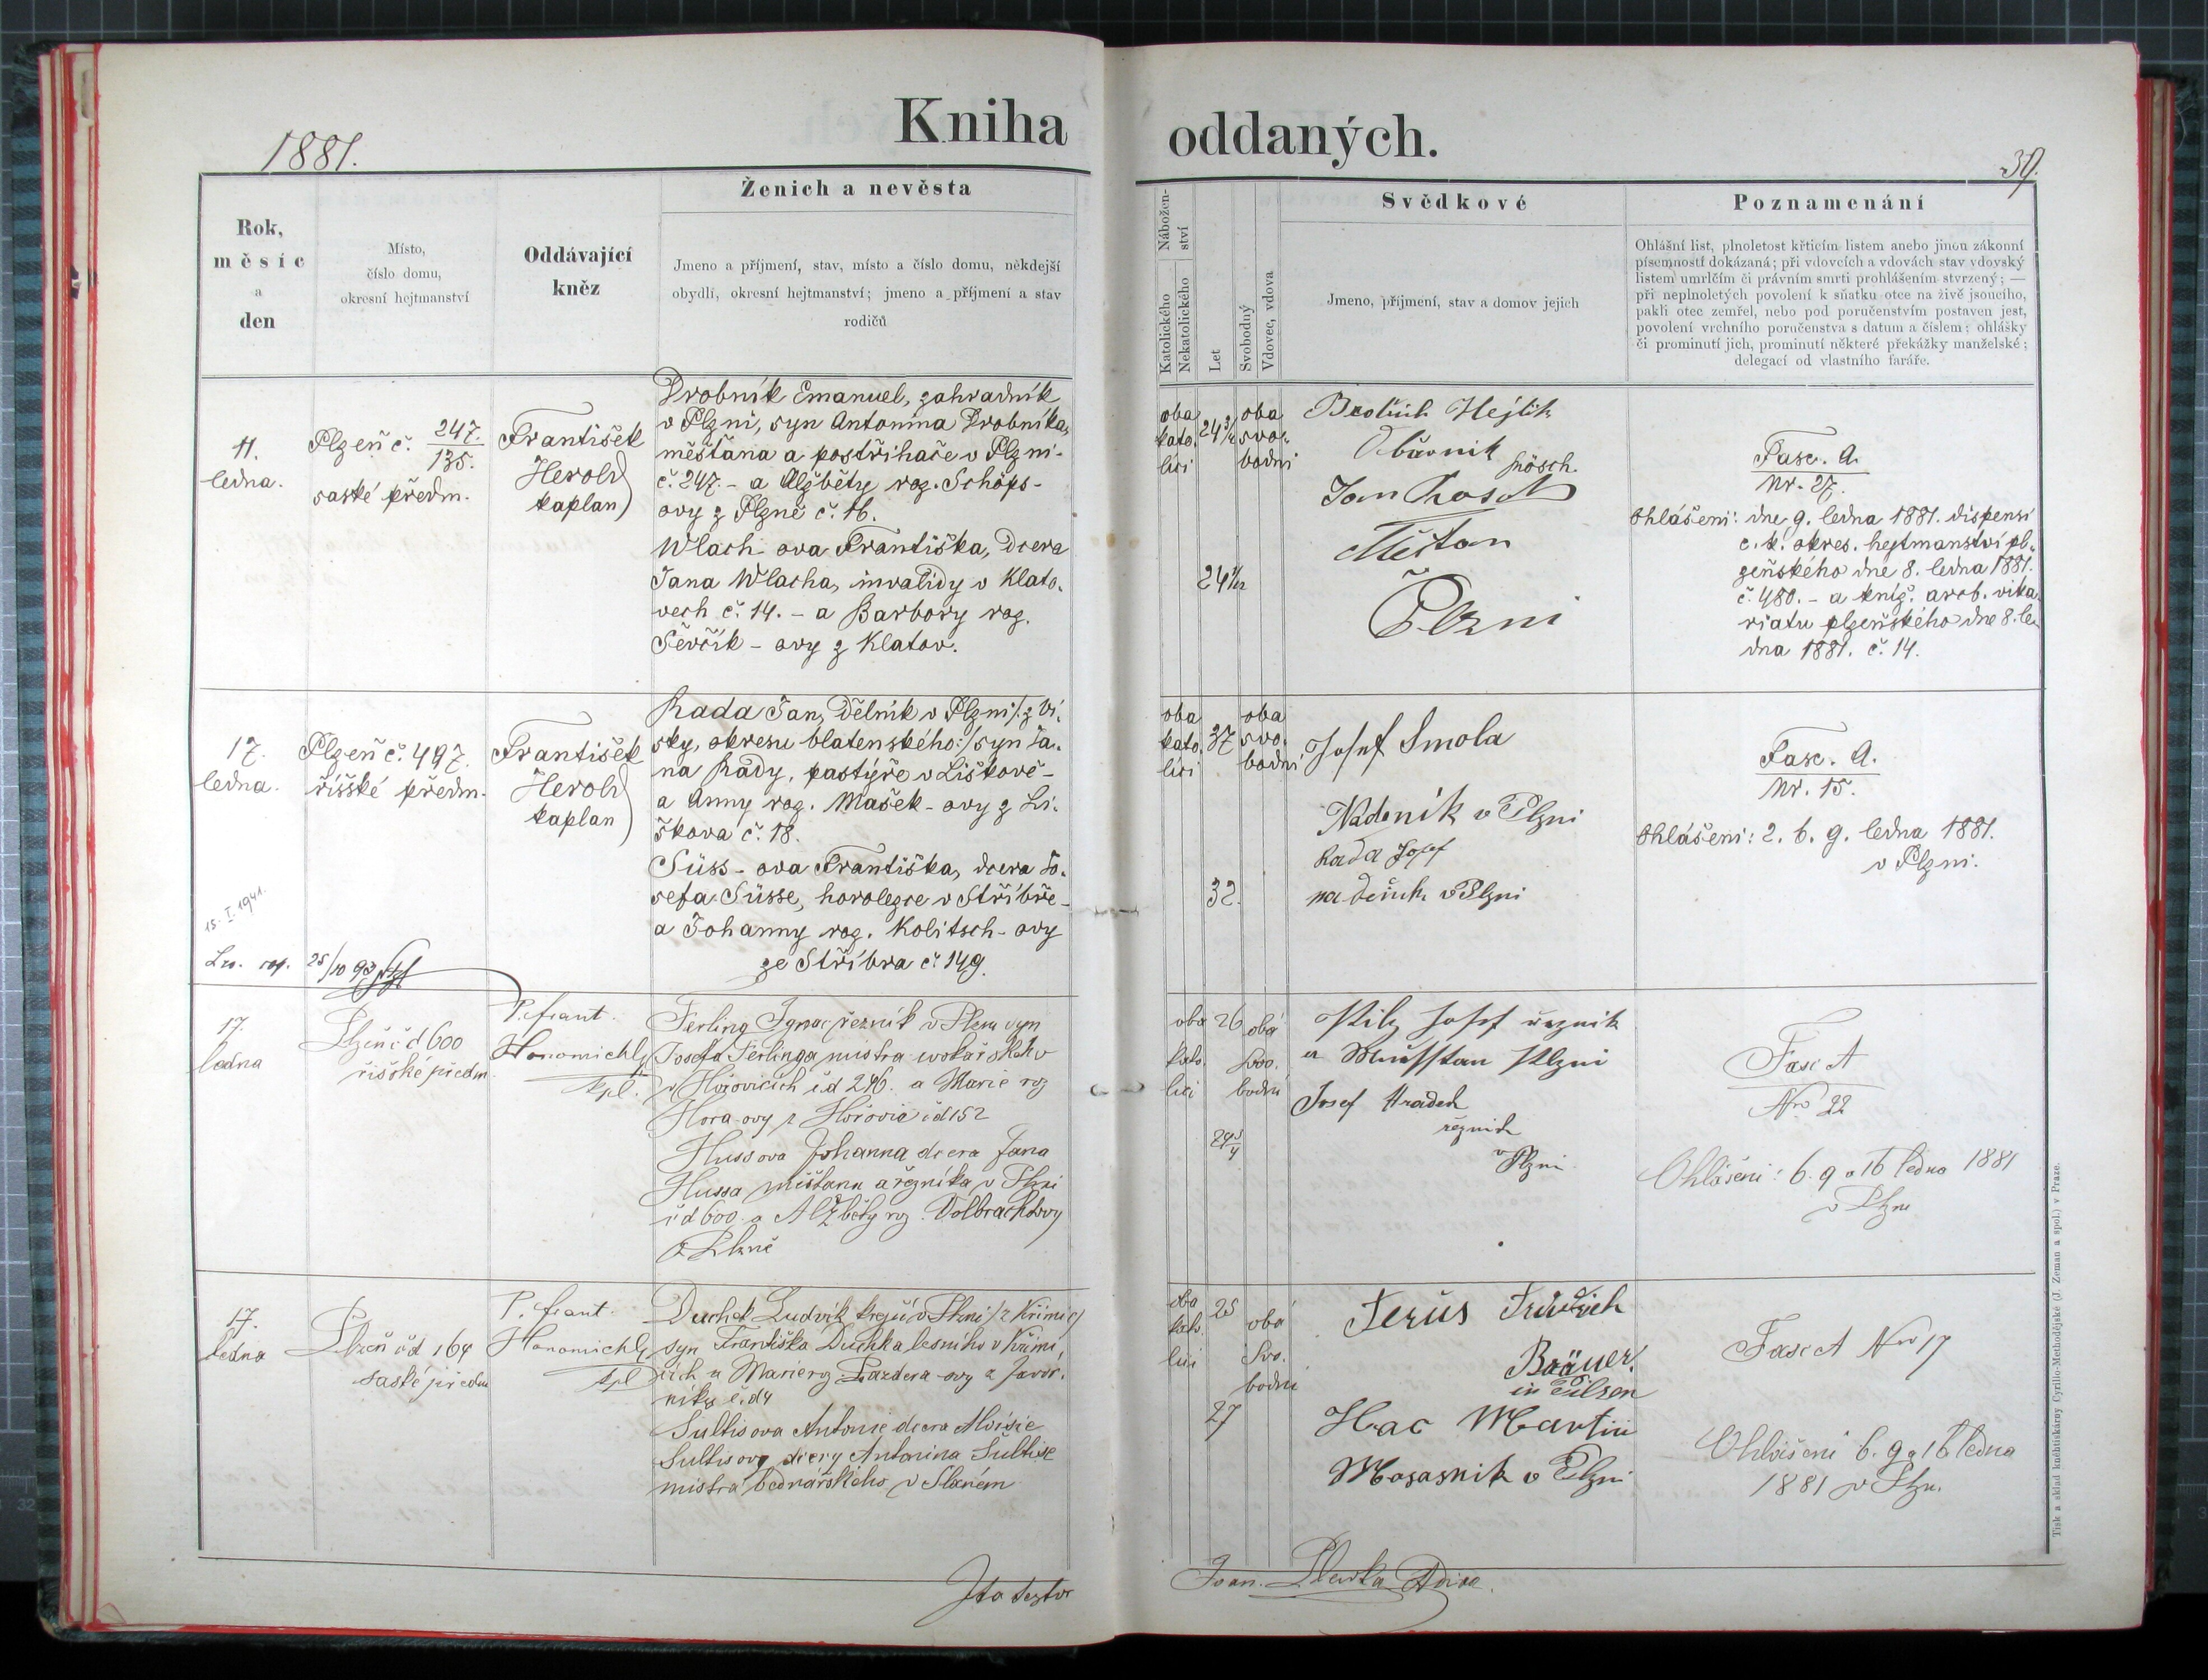 Kniha
oddaných.
1881.
39.
Rok,
měsíc
a
den
Místo,
číslo domu,
okresní hejtmanství
Oddávající
kněz
Ženich a nevěsta
Jmeno a příjmení, stav, místo a číslo domu, někdejší
obydlí, okresní hejtmanství; jmeno a příjmení a stav
rodičů
Nábožen-
ství
Katolického
Nekatolického
Let
Svobodný
Vdovec, vdova
Svědkové
Jmeno, příjmení, stav a domov jejich
Poznamenání
Ohlášní list, plnoletost křticím listem anebo jinou zákonní
písemností dokázaná; při vdovcích a vdovách stav vdovský
listem umrlčím či právním smrti prohlášením stvrzený; —
při neplnoletých povolení k sňatku otce na živě jsoucího,
pakli otec zemřel, nebo pod poručenstvím postaven jest,
povolení vrchního poručenstva s datum a číslem; ohlášky
či prominutí jich, prominutí některé překážky manželské;
delegací od vlastního faráře.
11.
ledna.
Plzeň č. 247.
135.
saské předm.
František
Herold
kaplan
Drobník Emanuel, zahradník
v Plzni, syn Antonína Drobníka,
měšťana a postřihače v Plzni-
č. 247. - a Alžběty roz. Schöps-
ovy z Plzně č. 16.
Wlach-ova Františka, dcera
Jana Wlacha, invalidy v Klato-
vech č. 14. - a Barbory roz.
Ševčík - ovy z Klatov.
oba
kato.
líci
24 3/4
oba
svo-
bodni
24 1/12
Hejlik
Jan
Měštan
Plzni
Fasc. A.
Nr. 27.
Ohlášeni: dne 9. ledna 1881. dispensí
c. k. okres. hejtmanství pl-
zeňského dne 8. ledna 1881.
č. 480. - a kníž. arcb. vika
riatu plzeňského dne 8. le
dna 1881. č. 14.
17.
ledna.
Plzeň č. 497.
říšské předm.
František
Herold
kaplan
Rada Jan, dělník v Plzni /: z Vi-
sky, okresu blatenského:/ syn Ja-
na Rady, pastýře v Liškově -
a Anny roz. Mašek - ovy z Li-
škova č. 18.
Süss - ova Františka, dcera Jo-
sefa Süsse, horolezce v Stříbře -
a Johanny roz. Kolitsch - ovy
ze Stříbra č. 149.
15. I. 1941.
25/10 93
oba
kato.
líci
37
oba
svo.
bodni
32.
Josef Smola
Nádeník v Plzni
Rada Josef
nadeník v Plzni
Fasc. A.
Nr. 15.
Ohlášeni: 2. 6. 9. ledna 1881.
v Plzni.
17.
ledna
Plzeň č d 600
říšské předm.
P. Frant.
Hanamichl
kpl.
Ferling Ignac, řezník v Plzni syn
Josefa Ferlinga mistra
v Hořovicích čd 246. a Marie roz
Hora-ovy z Hořovic čd 152
Hussova Johanna dcera Jana
Hussa měštana a řezníka v Plzni
čd 600 a Alžběty roz.
z Plzně
oba
kato.
lici
26
oba
svo.
bodni
29 3/4
Pilz Josef řeznik
Plzni
Josef Hradek
řeznik
v Plzni
Fasc A
Nro 22
Ohlášeni: 6. 9 a 16 ledna 1881
v Plzni
17.
ledna
Plzeň čd 164
saské předm
P. Frant.
Hanamichl
kpl
Duchek Ludvík krejčí v Plzni /z Křimic/
syn Františka Duchka lesního v Křimi-
cích a Marie roz Pazdera-ovy z Javor-
níku č. d 4
Sultisova Antonie dcera Aloisie
Sultisovy dcery Antonina Sultise
mistra bednářského v Slaném
oba
kato.
lici
25
oba
svo.
bodni
27
Ferüs
Bräuer
in Pilsen
Hac Martin
v Plzni
Fasc A Nro 17
Ohlášeni 6. 9 a 16 ledna
1881 v Plzn.
Ita testor
Joan.
Tisk a sklad knihtiskárny Cyrillo-Methodějské (J. Zeman a spol.) v Praze.